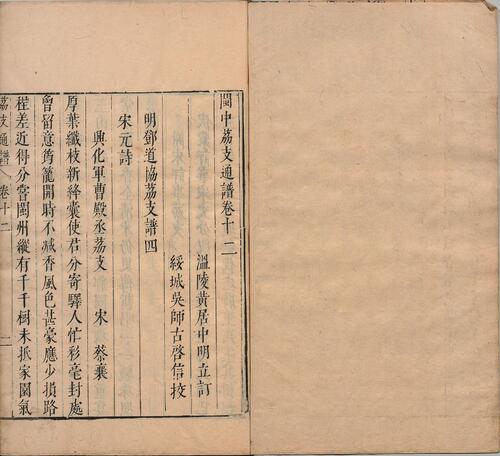 閩中荔支通譜卷十二
溫陵黃居中明立訂
綏城吳師古啓信挍
明鄧道協荔支譜四
宋元詩
興化軍曹殿丞荔支 宋 蔡襄
厚葉纖枝新絳囊使君分寄驛人忙彩毫封處
曾留意筠籠開時不减香風色甚豪應少損路
程差近得分嘗閩州縱有千千樹未抵家園氣
荔支通譜 卷十二 一